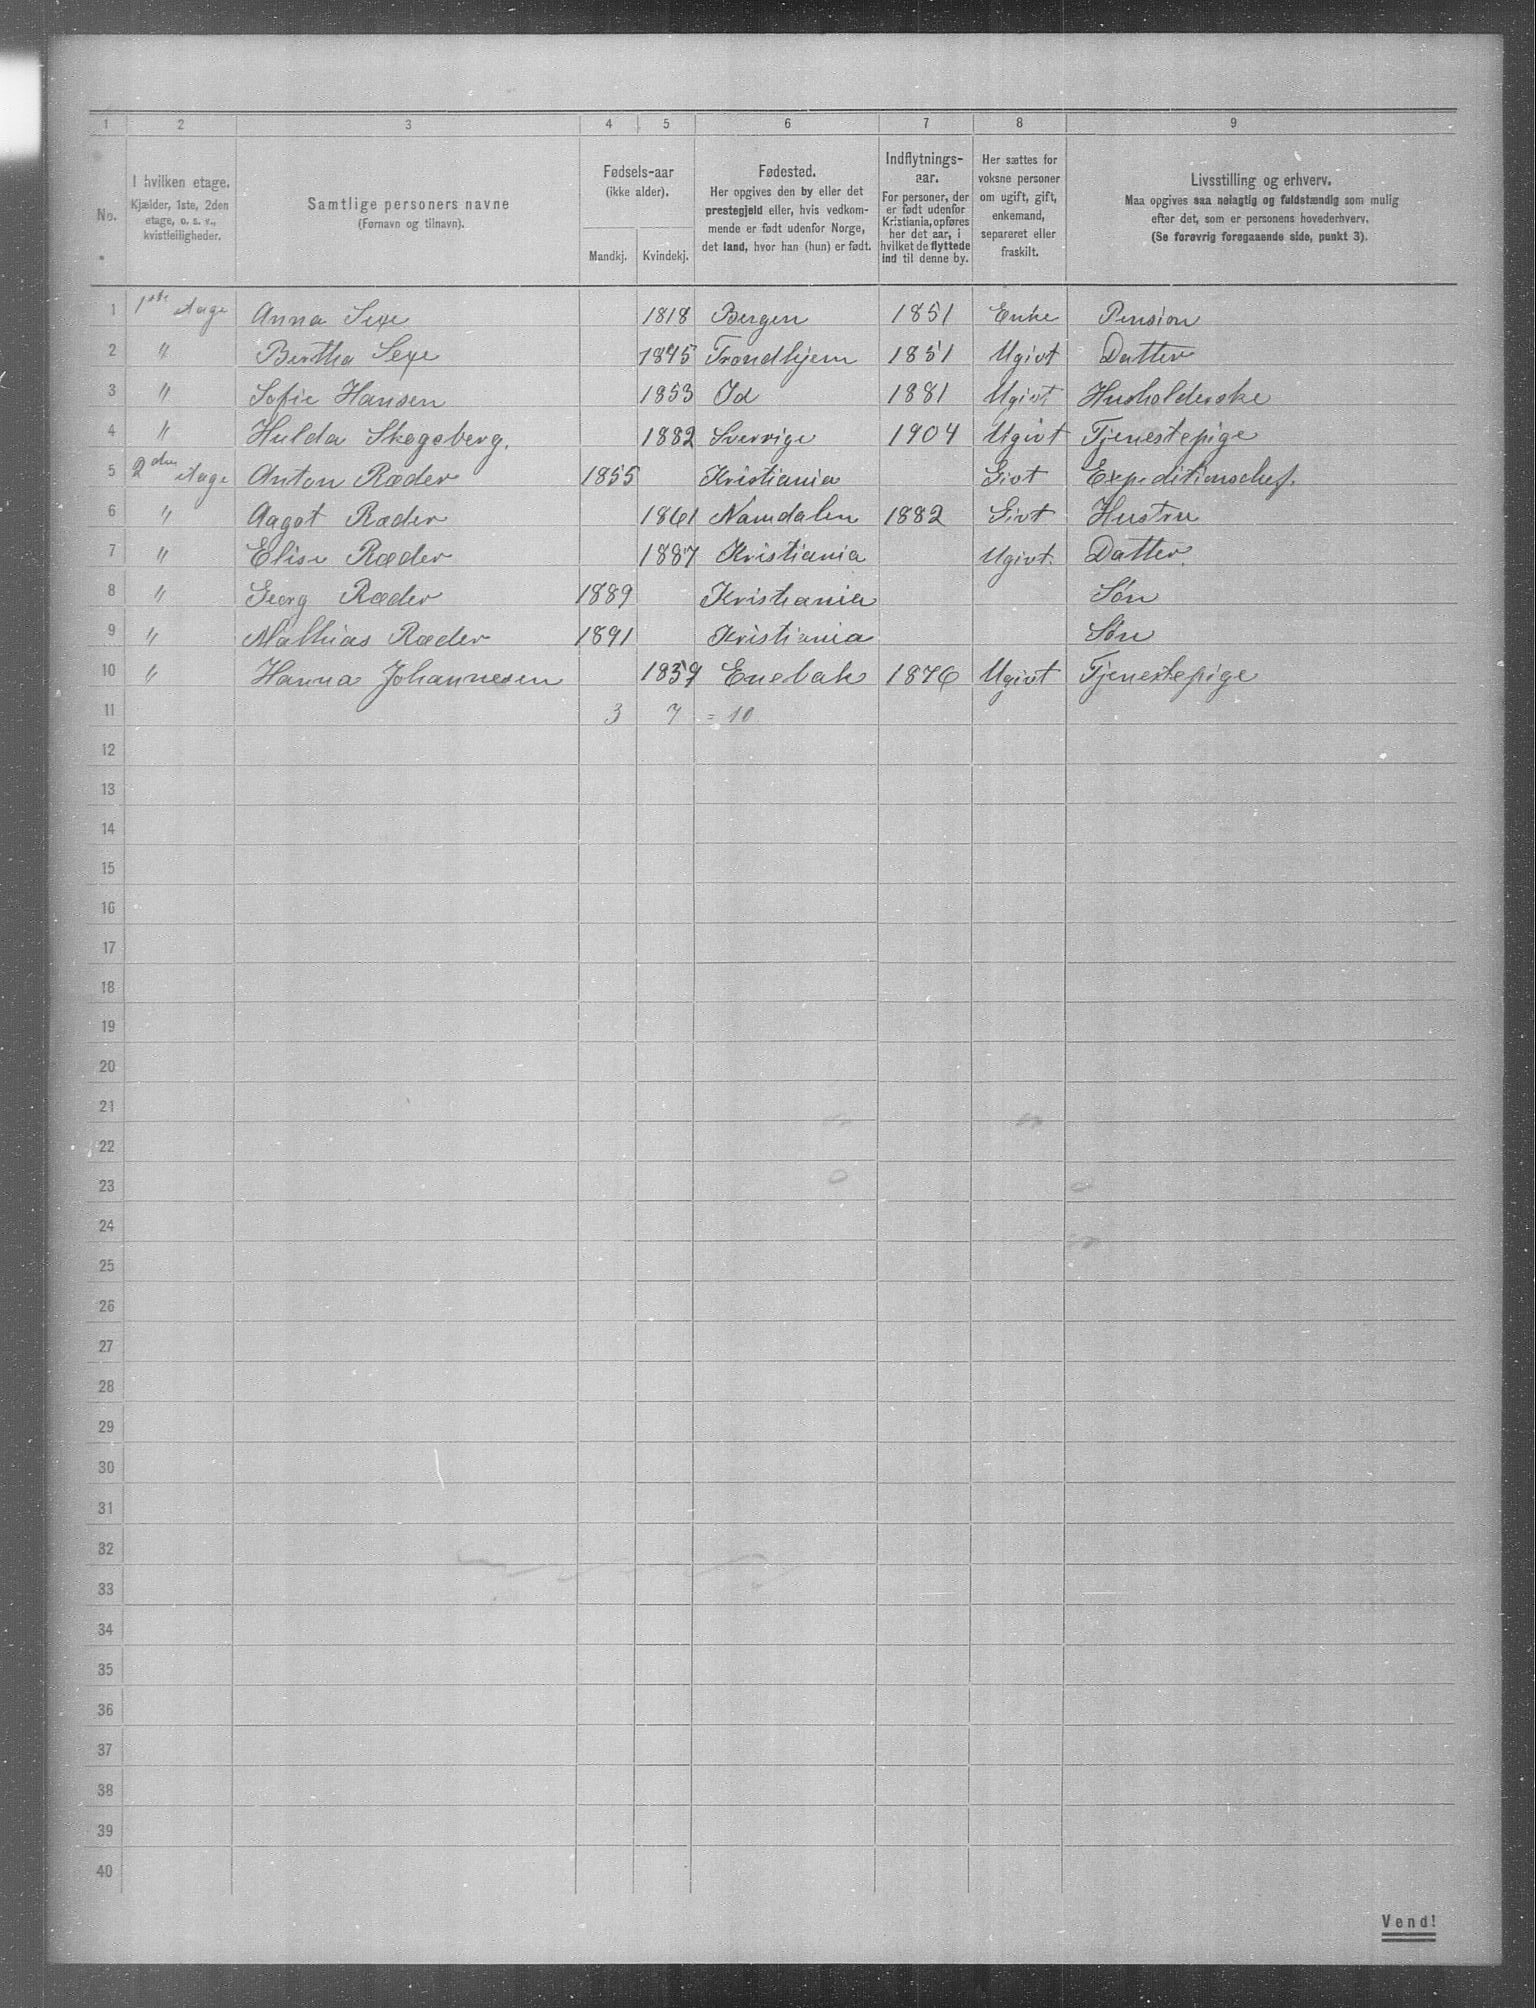 1 2 3 4 5 6 7 8 9
No.
I hvilken etage.
Kjælder, 1ste, 2den
etage, o. s. v.,
kvistleiligheder.
Samtlige personers navne
(Fornavn og tilnavn).
Fødsels-aar
(ikke alder).
Mandkj. Kvindekj.
Fødested.
Her opgives den by eller det
prestegjeld eller, hvis vedkom-
mende er født udenfor Norge,
det land, hvor han (hun) er født.
Indflytnings-
aar.
For personer, der
er født udenfor
Kristiania, opføres
her det aar, i
hvilket de flyttede
ind til denne by.
Her sættes for
voksne personer
om ugift, gift,
enkemand,
separeret eller
fraskilt.
Livsstilling og erhverv.
Maa opgives saa nøiagtig og fuldstændig som mulig
efter det, som er personens hovederhverv.
(Se forøvrig foregaaende side, punkt 3).
1 1ste etage Anna Sexe 1818 Bergen 1851 Enke Pension
2 " Bertha Sexe 1845 Trondhjem 1851 Ugivt Datter
3 " Sofie Hansen 1853 Id 1881 Ugivt Husholderske
4 " Hulda Skogsberg. 1882 Sverrige 1904 Ugivt Tjenestepige
5 2den etage Anton Ræder 1855 Kristiania Givt Expeditionschef.
6 " Aagot Ræder 1861 Namdalen 1882 Givt Hustru
7 " Elise Ræder 1887 Kristiania Ugivt. Datter.
8 " Georg Ræder 1889 Kristiania Søn
9 " Mathias Ræder 1891 Kristiania Søn
10 " Hanna Johannesen 1859 Enebak 1876 Ugivt Tjenestepige
11 3 7 = 10
12
13
14
15
16
17
18
19
20
21
22
23
24
25
26
27
28
29
30
31
32
33
34
35
36
37
38
39
40
Vend!